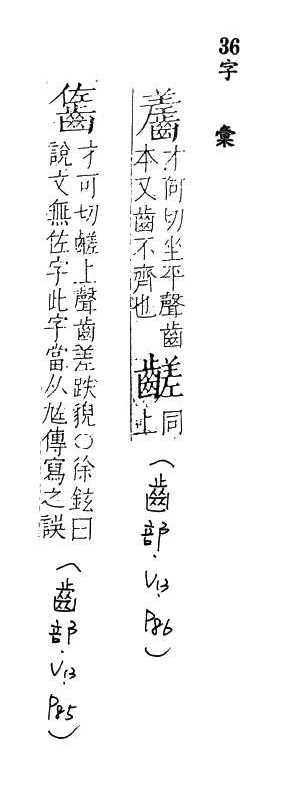 36字彙
齹
才何切坐平聲齒
本又齒不齊也
同
上
(齒部.V13 P86)
才可切鹺上聲齒差跌貌○徐鉉曰
說文無佐字此字當从㝿傳寫之誤
(齒部.V13 P85)